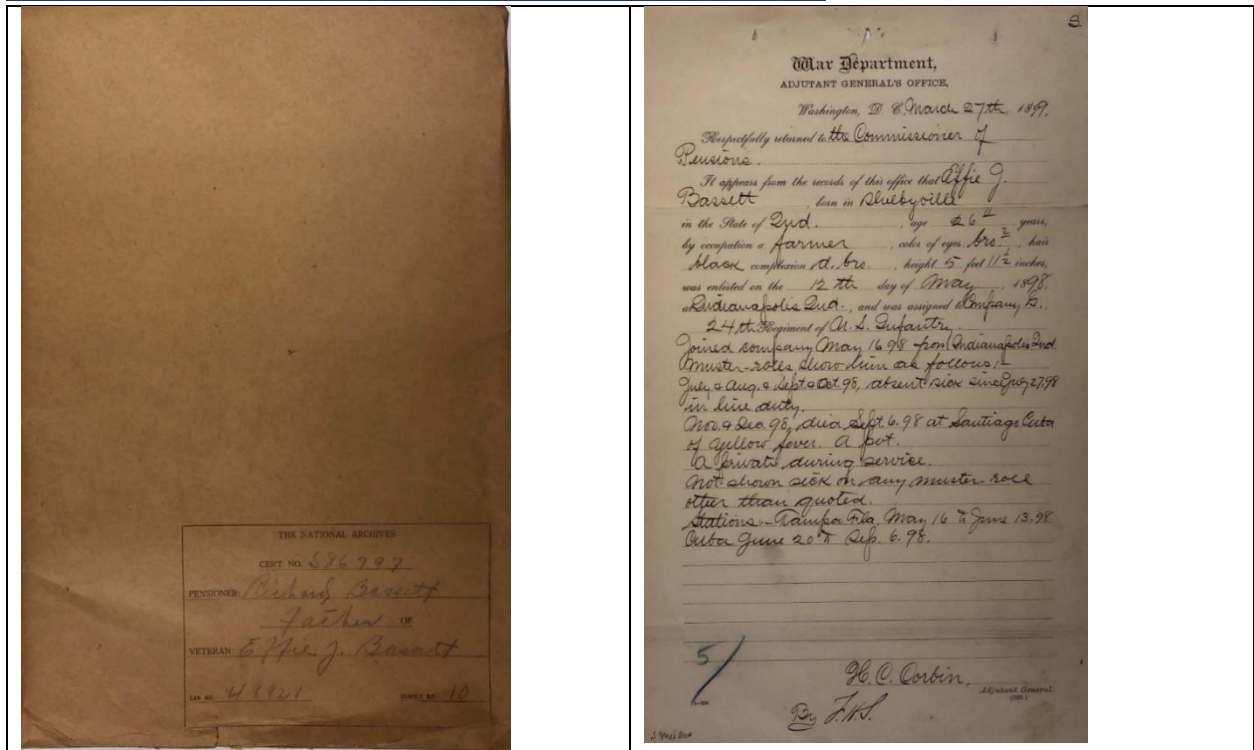 THE NATIONAL ARCHIVES
CERT. NO. 586797
PENSIONER: Richard Bassett
Father OF
VETERAN: Effie J. Bassett
CAN NO. 48821 BUNDLE NO. 10
War Department,
ADJUTANT GENERAL'S OFFICE,
Washington, D. C. March 27th 1899.
Respectfully returned to the Commissioner of
Pensions.
It appears from the records of this office that Effie J.
Bassett, born in Shelbyville
in the State of Ind., age 26 years,
by occupation a farmer, color of eyes bro., hair
black complexion d. bro., height 5 feet 11½ inches,
was enlisted on the 12th day of May, 1898,
at Indianapolis Ind., and was assigned to Company
24th Regiment of U. S. Infantry.
Joined company May 16 98 from Indianapolis Ind
Muster-rolls show him as follows:-
July & Aug. & Sept. & Oct 98, absent sick since 27, 98
in line duty.
Nov. & Dec. 98, died Sept. 6. 98 at Santiago Cuba
of yellow fever. A pvt.
A private during service.
Not shown sick on any muster-roll
other than quoted.
Stations - Tampa Fla, May 16 to June 13. 98
Cuba June 20 to Sep. 6. 98.
5/
H. C. Corbin,
Adjutant General.
By